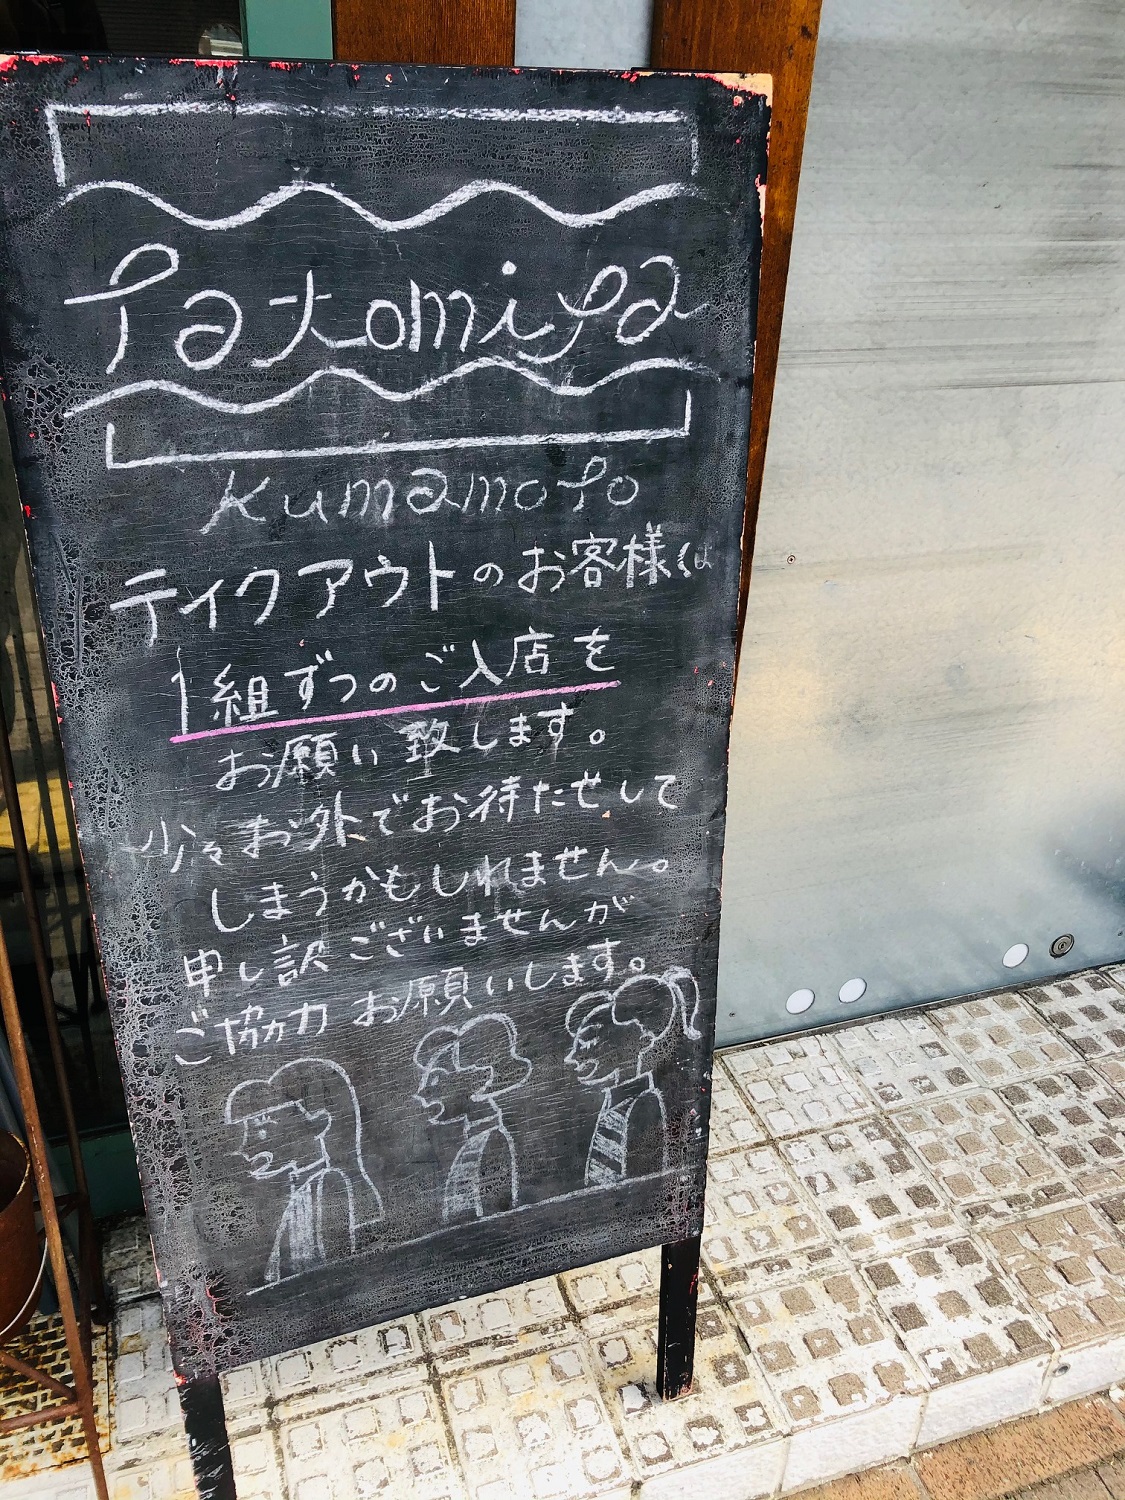 Kumamoto
テイクアウトのお客様は
1組ずつのご入店を
お願い致します。
少々お外でお待たせして
しまうかもしれません。
申し訳ございませんが
ご協力お願いします。